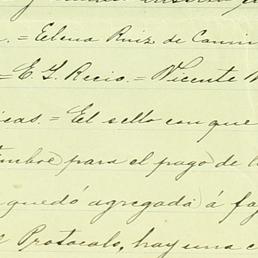 . = Elena Ruiz de
= E. G. Recio. = Vicente
= El sello con que
para el pago de
quedó agregada á
Protocolo, hay una